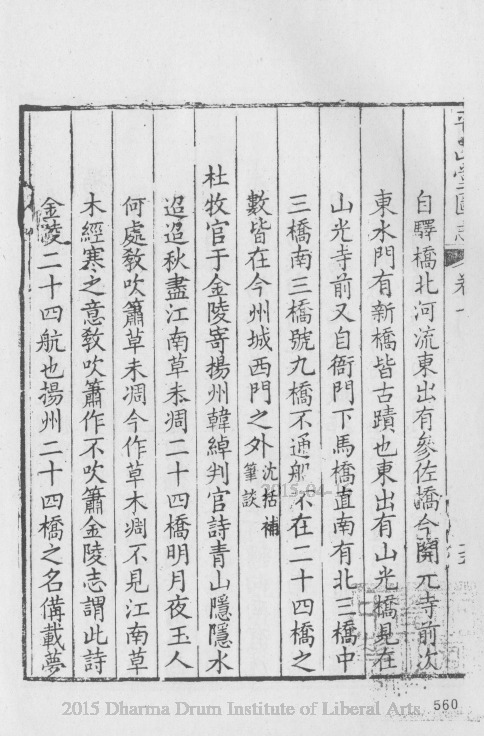 平山堂圖志 卷一
自驛橋北河流東出有參佐橋今開元寺前次
東水門有新橋皆古蹟也東出有山光橋見在
山光寺前又自衙門下馬橋直南有北三橋中
三橋南三橋號九橋不通船不在二十四橋之
數皆在今州城西門之外沈括補筆談
杜牧官于金陵寄揚州韓綽判官詩青山隱隱水
迢迢秋盡江南草未凋二十四橋明月夜玉人
何處教吹簫草未凋今作草木凋不見江南草
木經寒之意教吹簫作不吹簫金陵志謂此詩
金陵二十四航也揚州二十四橋之名備載夢
2015-04-
2015 Dharma Drum Institute of Liberal Arts
560